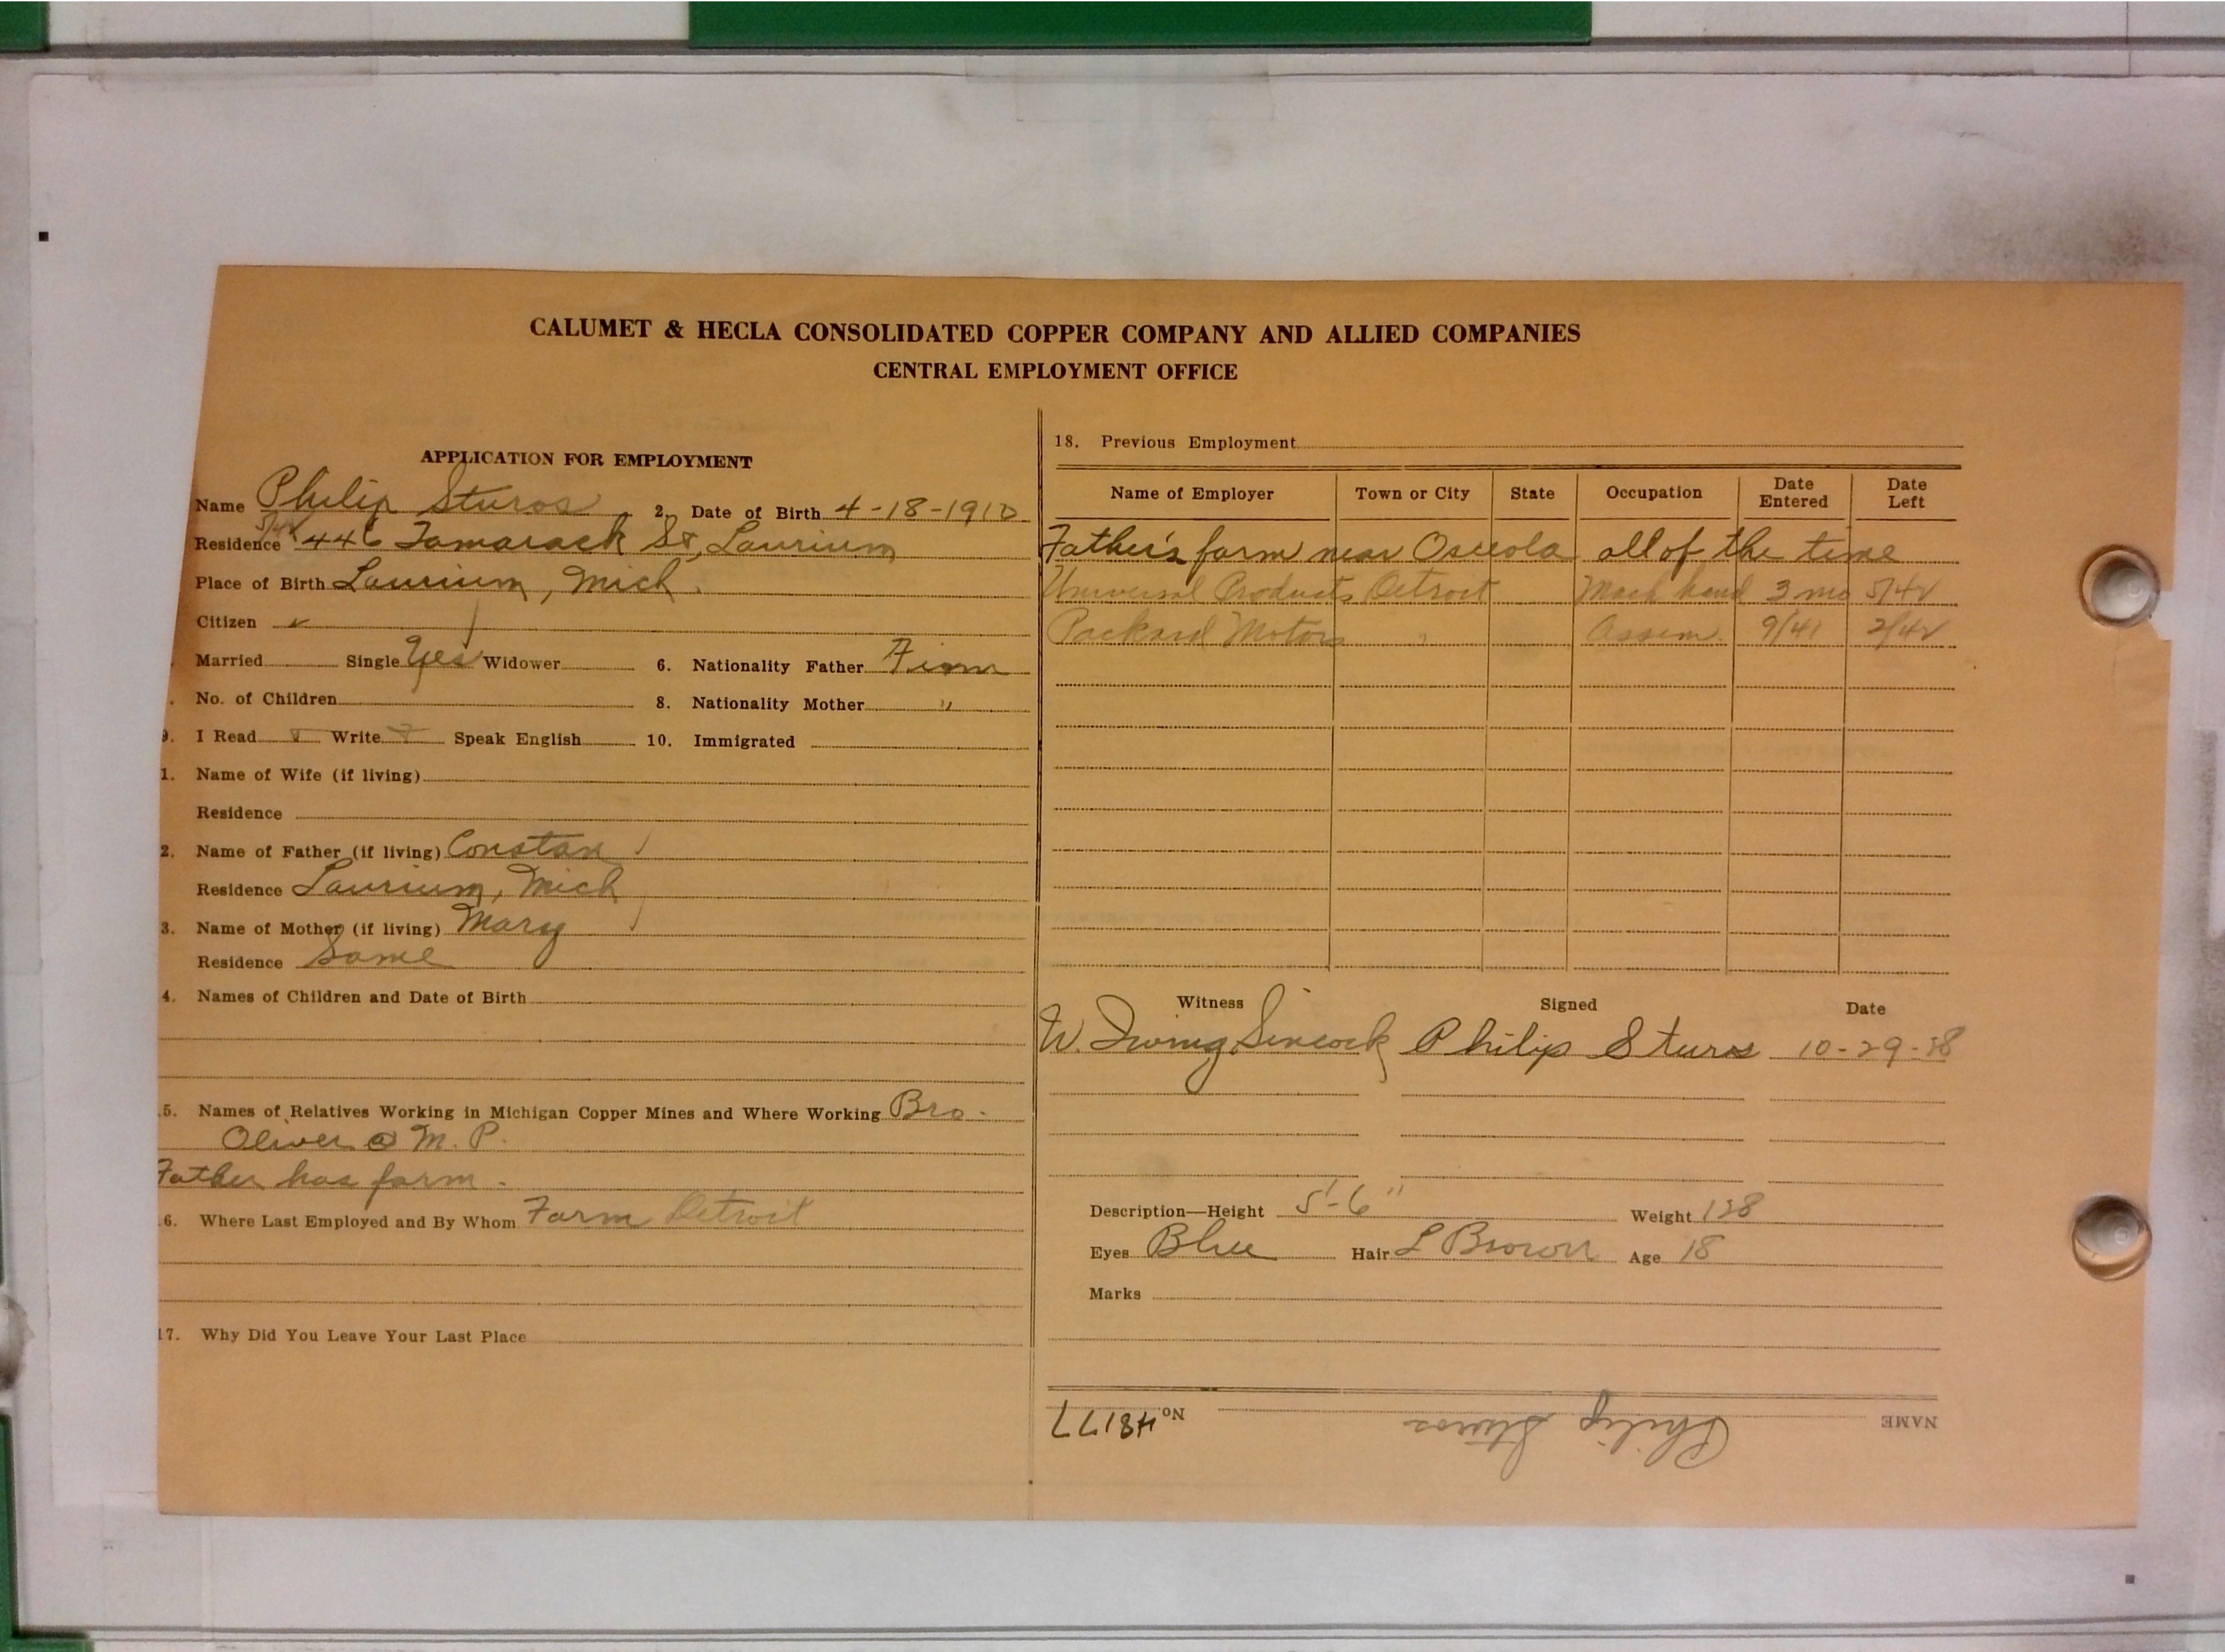 CALUMET & HECLA CONSOLIDATED COPPER COMPANY AND ALLIED COMPANIES
CENTRAL EMPLOYMENT OFFICE
APPLICATION FOR EMPLOYMENT
Name Philip Sturos 2. Date of Birth 4-18-1910
Residence 446 Tamarack St, Laurium
Place of Birth Laurium, Mich.
Citizen ✓
Married Single Yes Widower 6. Nationality Father Finn
No. of Children 8. Nationality Mother "
9. I Read ✓ Write ✓ Speak English 10. Immigrated
1. Name of Wife (if living)
Residence
2. Name of Father (if living) Constan
Residence Laurium, Mich
3. Name of Mother (if living) Mary
Residence Same
4. Names of Children and Date of Birth
5. Names of Relatives Working in Michigan Copper Mines and Where Working Bro.
Oliver @ M. P.
Father has farm.
6. Where Last Employed and By Whom Farm Detroit
17. Why Did You Leave Your Last Place
18. Previous Employment
Name of Employer Town or City State Occupation Date Entered Date Left
Father's farm near Osceola all of the time
Universal Products Detroit Mach hand 3 mo 5/42
Packard Motors " Assem. 9/41 2/42
Witness Signed Date
W. Irving Sincock Philip Sturos 10-29-38
Description—Height 5'-6" Weight 138
Eyes Blue Hair L Brown Age 18
Marks
NAME Philip Sturos No. 48177